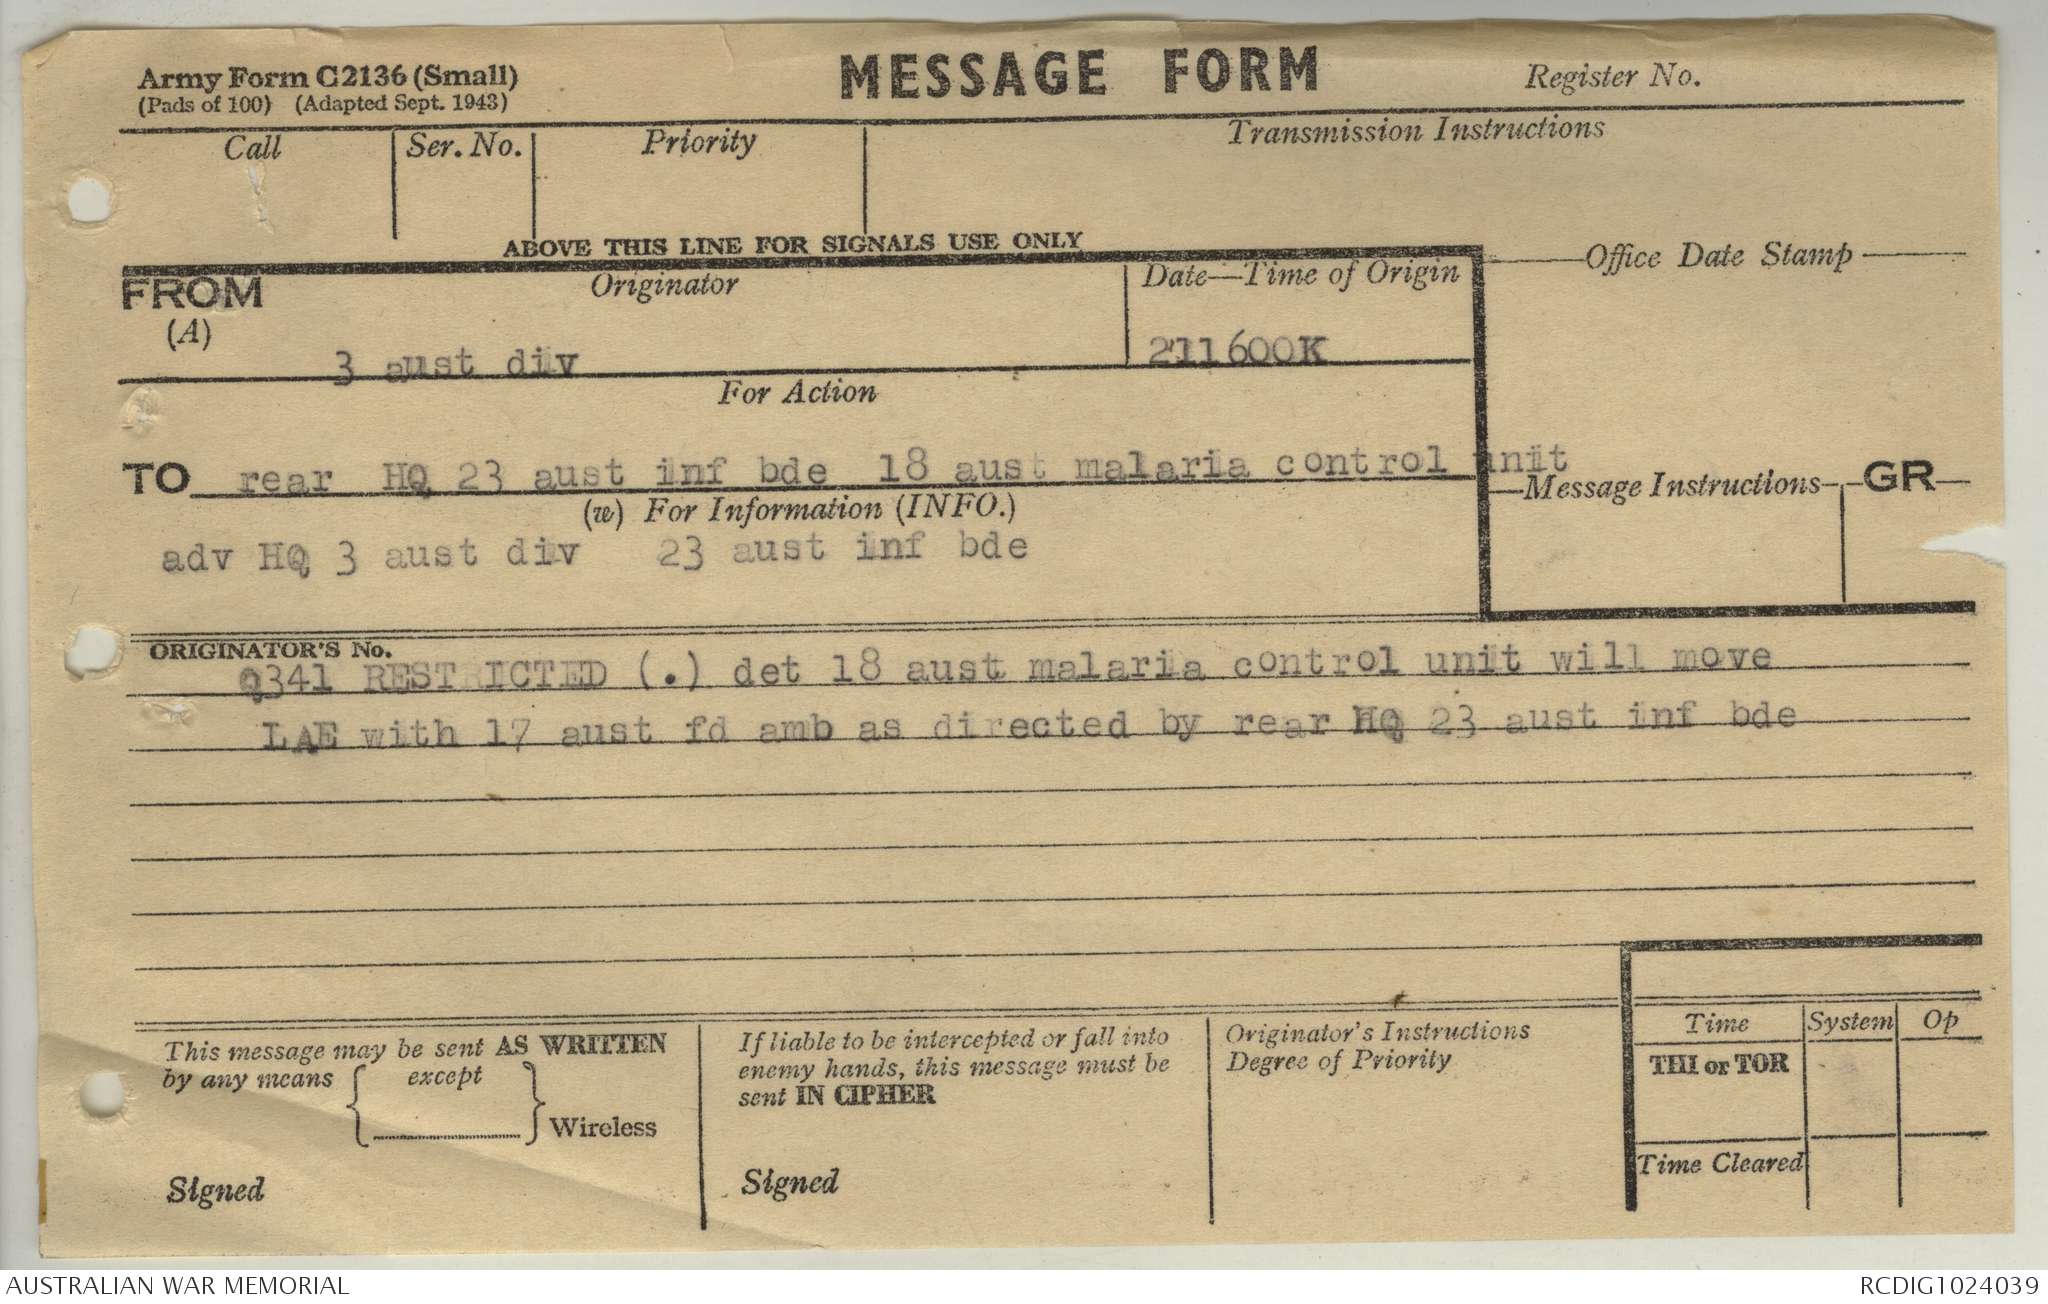 Army Form C2136 (Small)
(Pads of 100) (Adapted Sept. 1943)
MESSAGE FORM
Register No.
Call
Ser. No.
Priority
Transmission Instructions
ABOVE THIS LINE FOR SIGNALS USE ONLY
FROM
(A)
Originator
Date—Time of Origin
Office Date Stamp
3 aust div
211600K
For Action
TO rear HQ 23 aust inf bde 18 aust malaria control unit
(w) For Information (INFO.)
Message Instructions
GR
adv HQ 3 aust div 23 aust inf bde
ORIGINATOR'S No.
Q341 RESTRICTED (.) det 18 aust malaria control unit will move
LAE with 17 aust fd amb as directed by rear HQ 23 aust inf bde
This message may be sent AS WRITTEN
by any means { except } Wireless
Signed
If liable to be intercepted or fall into
enemy hands, this message must be
sent IN CIPHER
Signed
Originator's Instructions
Degree of Priority
Time
System
Op
THI or TOR
Time Cleared
AUSTRALIAN WAR MEMORIAL
RCDIG1024039